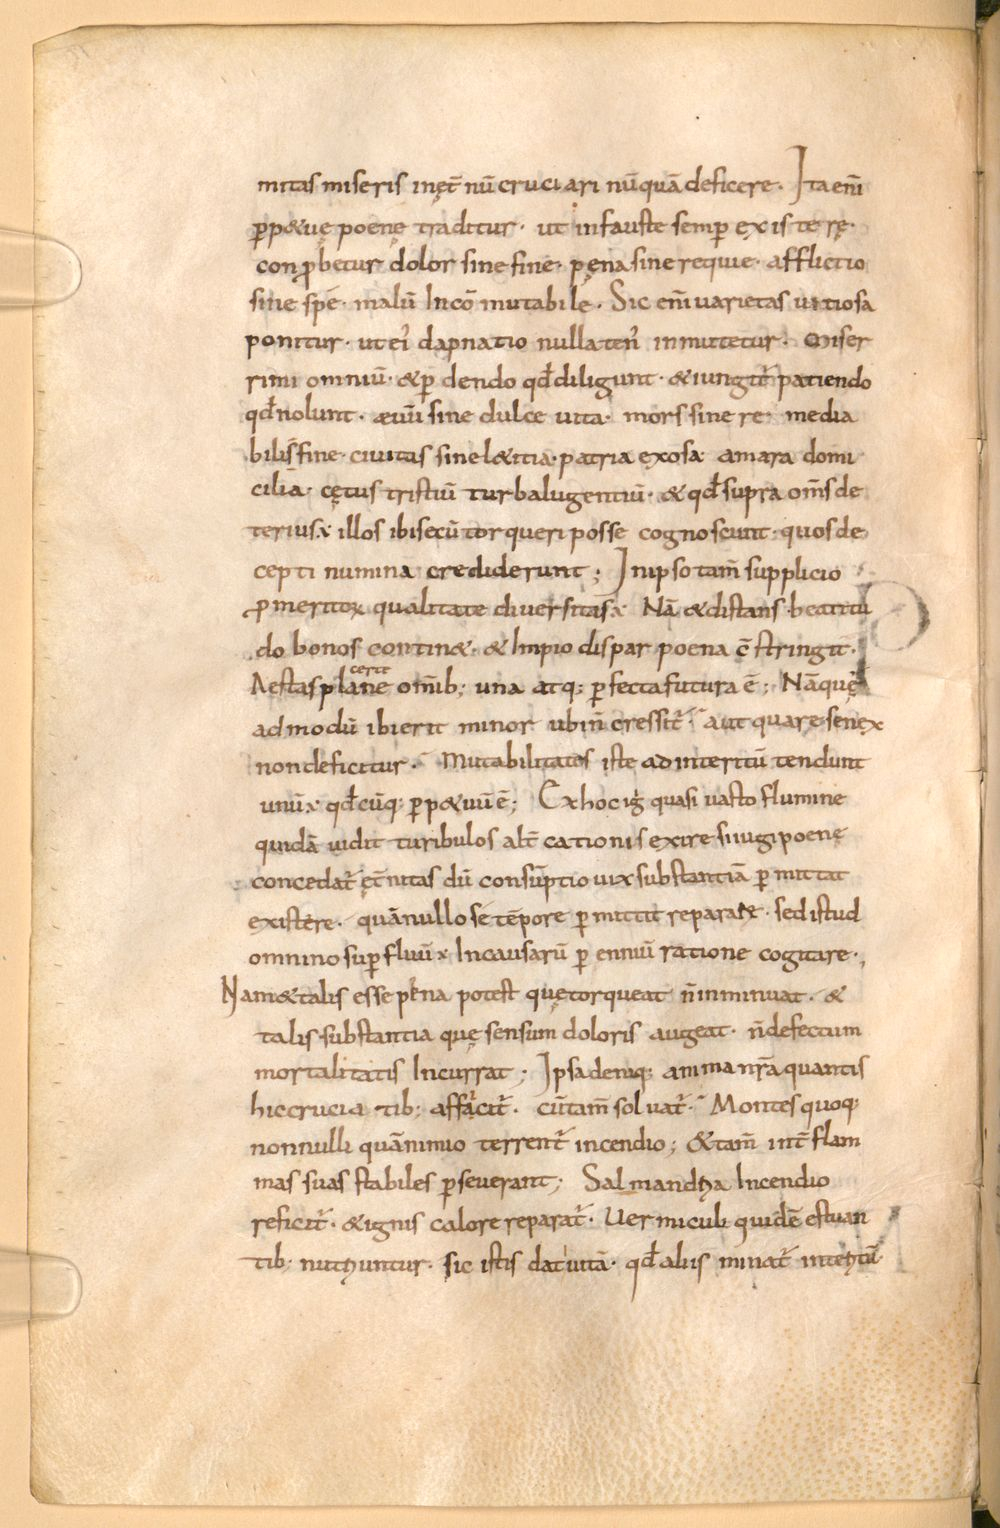 mitas miseris inęt̄ nū cruciari nūquā deficere · Ita em̄
ꝑp&uę poenę traditur · ut infauste semꝑ existere ·
con ꝓbetur dolor sine fine · pęna sine requie · afflictio
sine spē · malū Incōmutabile · Sic em̄ uarietas uitiosa
ponitur · ut ei dapnatio nullaten̄ inmittetur · miser
rimi omniū · &ꝑdendo qđ diligunt · & iungit̄ patiendo
qđ nolunt · æuū sine dulce uita · mors sine re media
bilis fine · ciuitas sine l&itia · patria exosa amara domi
cilia · cętus tristiū turba lugentiū · & qđ supra om̄s de
terius · illos ibi secū torqueri posse cognoscunt · quos de
cepti numina crediderunt ; In ipso tam̄ supplicio
ꝓ meritoꝝ qualitate diuersitas ÷ Nā & distans beatitu
do bonos contin& · & Impio dispar poena cstringit ·
Aestas plane cerit om̄ib; una atq; ꝑfecta futura ē ; Nāquę
admodū ibi erit minor ubi n̄ cressit̄ · aut quare senex
non deficitur · Mutabilitates iste ad interitū tendunt
unū · qđ cūq; ꝑp&uū ē ; Ex hoc ig̅ quasi uasto flumine
quidā uidit turibulos alt̄cationis exire si iugi poenę
concedat̄ ęt̄nitas dū consūptio uix substantiā ꝑmittat
existere · quā nullo se tēpore ꝑmittit reparare · sed istud
omnino suꝑfluū Incausarū ꝑenniū ratione cogitare ·
Nam & talis esse pęna potest quę torqueat n̄ inminuat · &
talis substantia quę sensum doloris augeat · n̄ defectum
mortalitatis Incurrat ; Ipsa deniq; amma nr̄a quantis
hic crucia tib; afficit̄ · cū tam̄ soluat̄ · Montes quoq;
nonnulli quā nimio terrent̄ incendio ; & tam̄ int̄ flam
mas suas stabiles ꝑseuerant ; Salmandra Incendio
reficit̄ · & ignis calore reparat̄ · Uermiculi quidē estuan
tib; nutriuntur · sic istis dat uitā · qđ aliis minat̄ interitū ·